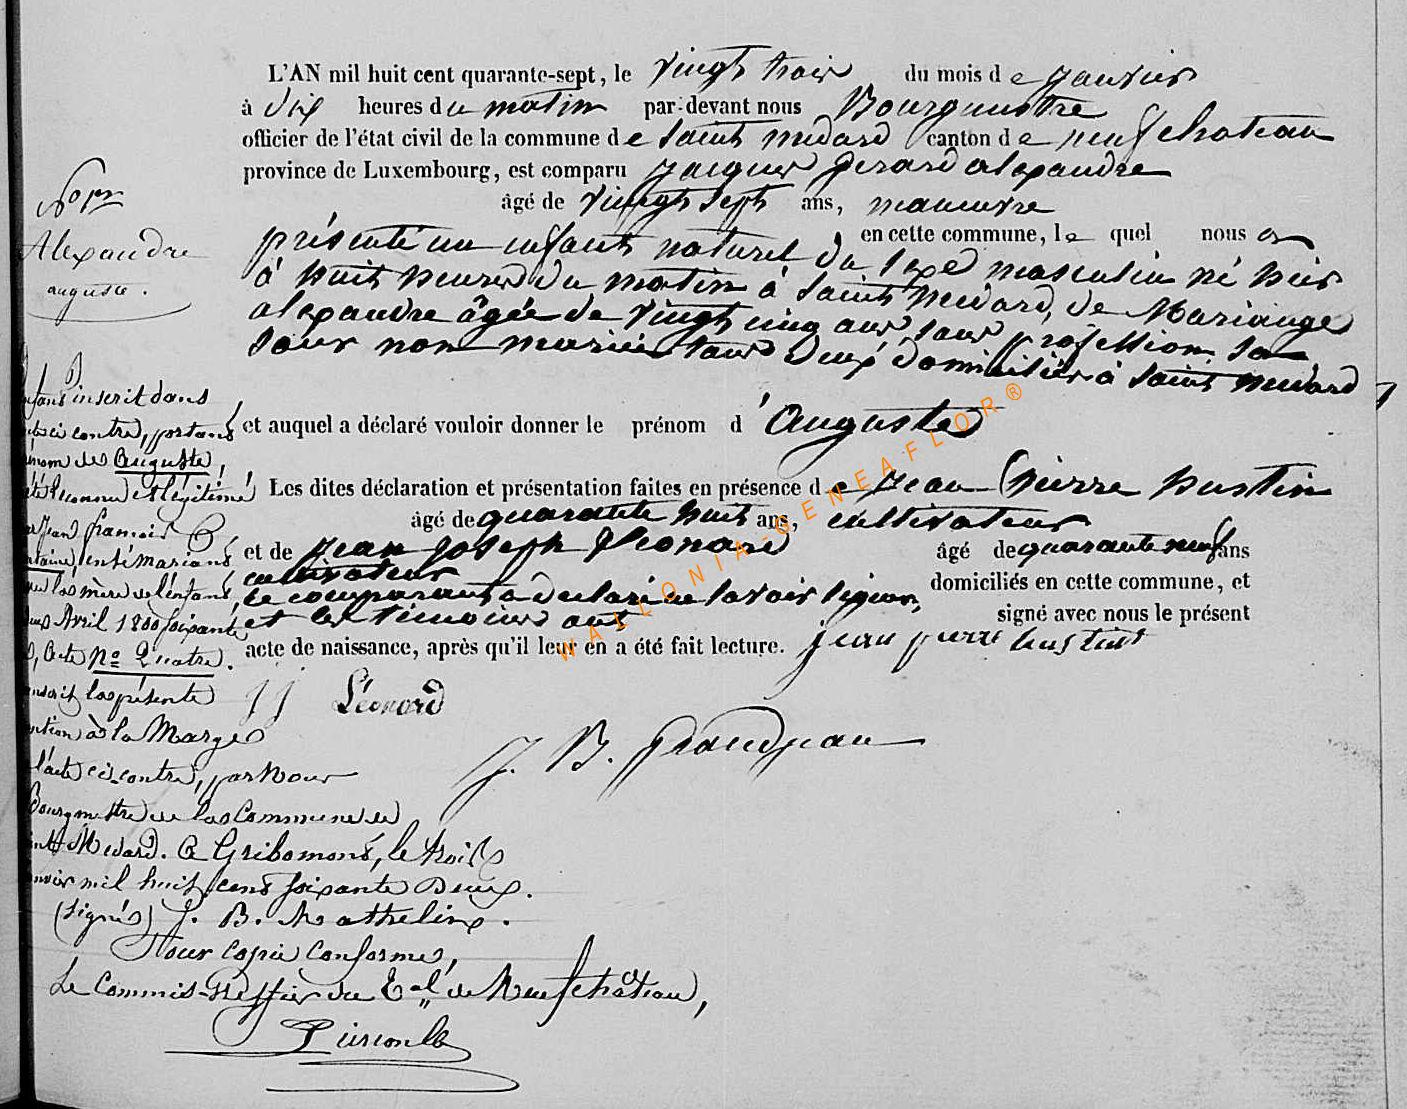 L'AN mil huit cent quarante-sept, le vingt trois du mois de janvier
à dix heures du matin par-devant nous Bourgmestre
officier de l'état civil de la commune de Saint médard canton de neufchateau
province de Luxembourg, est comparu Jacques gerard alexandre
âgé de vingt sept ans, manœuvre
en cette commune, le quel nous a
présenté un enfant naturel du sexe masculin né hier
à huit heures du matin à Saint Médard, de Mariange
alexandre âgée de vingt cinq ans sans profession sa
sœur non mariée tous deux domiciliés à Saint médard
et auquel a déclaré vouloir donner le prénom d'Auguste
Les dites déclaration et présentation faites en présence de Jean Pierre hustin
âgé de quarante huit ans, cultivateur
et de Jean Joseph Léonard âgé de quarante neuf ans
cultivateur domiciliés en cette commune, et
le comparant a déclaré ne savoir signer,
et les témoins ont signé avec nous le présent
acte de naissance, après qu'il leur en a été fait lecture. jean pierre hustint
JJ Léonard
J. B. Grandjean
Alexandre
auguste.
inscrit dans
ci contre, portant
de Auguste,
reconnu et légitimé
Jean françois
mariant
la mère de l'enfant,
Avril 1800 soixante
acte No Quatre.
la présente
à la Marge
l'acte ci-contre, par Nous
Bourgmestre de la Commune de
Médard. à Gribomont, le trois
mil huit cent soixante Deux.
(Signé) J. B. Mathelin.
Pour copie Conforme,
Le Commis-Greffier du Tal de Neufchâteau,
WALLONIA-GENEAFLOR®